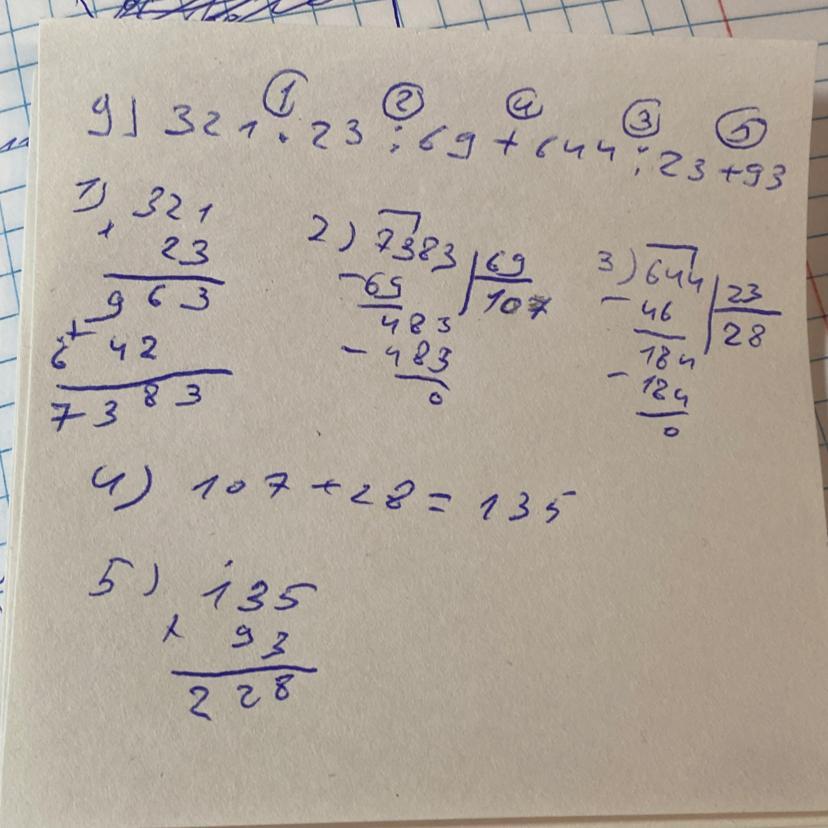 9) 321 · 23 : 69 + 644 : 23 + 93
① ② ④ ③ ⑤
1) 321
× 23
963
+
642
7383
2) 7383 | 69
- 69 | 107
483
- 483
0
3) 644 | 23
- 46 | 28
184
- 184
0
4) 107 + 28 = 135
5) 135
+ 93
228